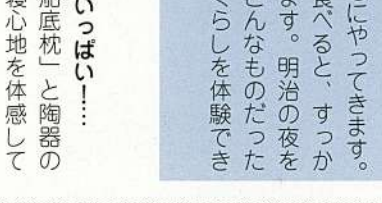 にやってきます。
食べると、すっか
ます。明治の夜を
どんなものだった
くらしを体験でき
いっぱい!…
船底枕」と陶器の
寝心地を体感して